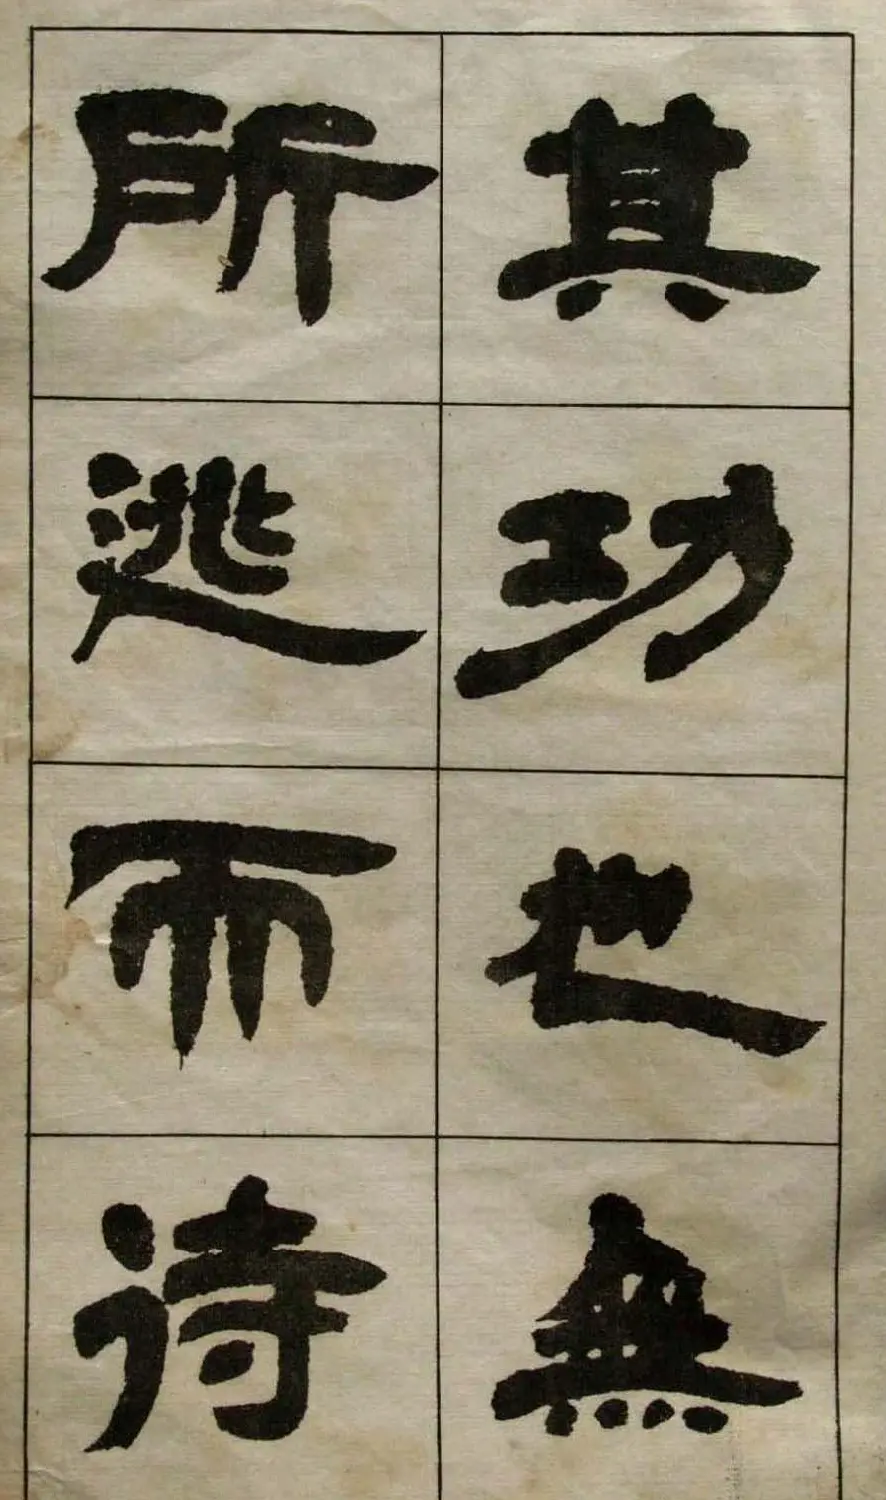 其功也無
所逃而待